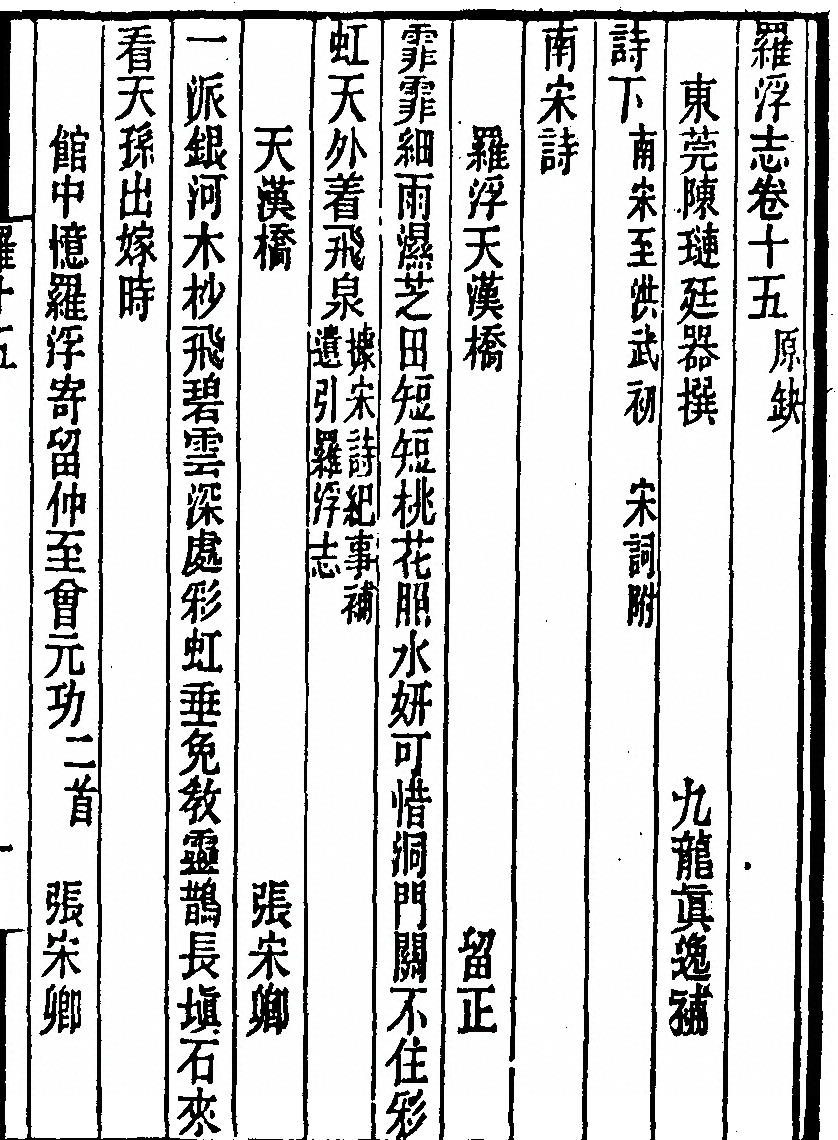 羅浮志卷十五原缺
東莞陳璉廷器撰 九龍眞逸補
詩下南宋至洪武初 宋詞附
南宋詩
羅浮天漢橋 留正
霏霏細雨濕芝田短短桃花照水妍可惜洞門關不住彩
虹天外着飛泉據宋詩紀事補遺引羅浮志
天漢橋 張宋卿
一派銀河木杪飛碧雲深處彩虹垂免教靈鵲長塡石來
看天孫出嫁時
館中憶羅浮寄留仲至曾元功二首 張宋卿